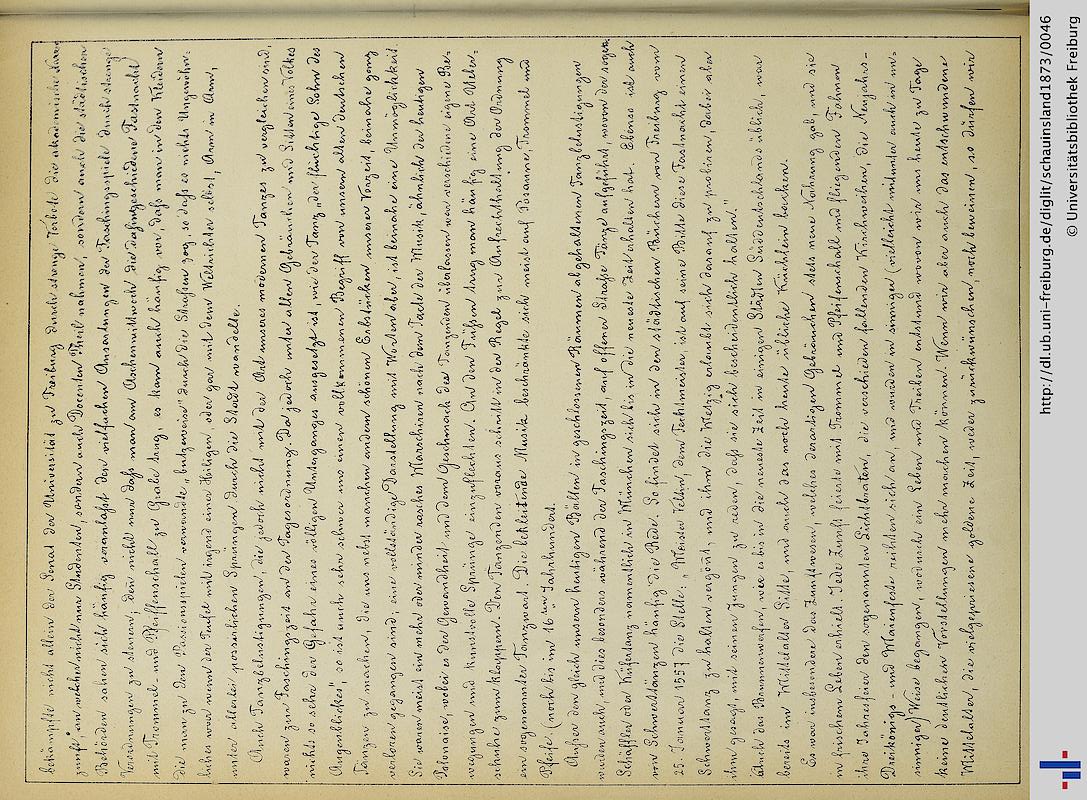 bekämpfte nicht allein der Senat der Universität zu Freiburg durch strenge Verbote die akademische
zunft, an welcher nicht nur Studenten, sondern auch Docenten Theil nahmen, sondern auch die städtischen
Behörden sahen sich häufig veranlaßt den vielfachen Ausartungen der Faschingsspiele durch strenge
Verordnungen zu steuern, denn nicht nur daß man am Aschermittwoch die dahingeschiedene Fastnacht
mit Trommel- und Pfeiffenschall zu Grabe trug, es kam auch häufig vor, daß man in den Kleidern
die man zu den Passionsspielen verwandte „butzenweis“ durch die Straßen zog, so daß es nichts Ungewöhn-
liches war wenn der Teufel mit irgend einer Heiligen, oder gar mit dem Weltrichter selbst, Arm in Arm,
unter allerlei possierlichen Sprüngen durch die Stadt wandelte.
Auch Tanzbelustigungen, die jedoch nicht mit der Art unseres modernen Tanzes zu vergleichen sind,
waren zur Faschingszeit an der Tagesordnung. Da jedoch unter allen Gebräuchen und Sitten eines Volkes
nichts so sehr der Gefahr eines völligen Unterganges ausgesetzt ist, wie der Tanz, „der flüchtige Sohn des
Augenblickes“, so ist auch sehr schwer uns einen vollkommenen Begriff von unsern alten deutschen
Tänzen zu machen, die uns nebst manchen andern schönen Erbstücken unserer Vorzeit, beinahe ganz
verloren gegangen sind; eine vollständige Darstellung mit Worten aber, ist beinahe eine Unmöglichkeit.
Sie waren meist ein mehr oder minder rasches Marschiren nach dem Takte der Musik, ähnlich der heutigen
Polonaise, wobei es der Gewandheit und dem Geschmack des Tanzenden überlassen war verschiedene eigene Be-
wegungen und kunstvolle Sprünge einzuflechten. An den Füßen trug man häufig eine Art Ueber-
schuhe zum Klappern. Den Tanzenden voraus schritt in der Regel zur Aufrechthaltung der Ordnung
ein sogenannter Tanzwart. Die begleitende Musik beschränkte sich meist auf Posaune, Trommel und
Pfeife. (noch bis im 16ten Jahrhundert.
Außer den gleich unsern heutigen Bällen in geschlossenen Räumen abgehaltenen Tanzbelustigungen
wurden auch, und dies besonders während der Faschingszeit, auf offener Straße Tänze aufgeführt, wovon der sogen.
Schäffler oder Küfertanz namentlich in München sich bis in die neueste Zeit erhalten hat. Ebenso ist auch
von Schwerttänzen häufig die Rede. So findet sich in den städtischen Büchern von Freiburg vom
25. Januar 1557 die Stelle: „Maister Velltin, dem Fechtmeister, ist auf seine Bitte diese Fastnacht einen
Schwerttanz zu halten vergönt, und ihm die Metzig erlaubt sich darauf zu probiren, dabei aber
ihm gesagt mit seinen Jungen zu reden, daß sie sich bescheidentlich halten.“
Auch das Brunnenwerfen, wie es bis in die neueste Zeit in einigen Städten Süddeutschlands üblich, war
bereits im Mittelalter Sitte, und auch das noch heute übliche Küchlein backen.
Es war insbesondere das Zunftwesen, welches derartigen Gebräuchen stets neue Nahrung gab, und sie
in frischem Leben erhielt. Jede Zunft feierte mit Trommel und Pfeifenschall und fliegenden Fahnen
ihre Jahresfeier den sogenannten Lichtbraten, die verschieden fallenden Kirchweihen, die Neujahrs-
Dreikönigs- und Maienfeste reihten sich an, und wurden in sinniger (vielleicht mitunter auch in un-
sinniger) Weise begangen, wodurch ein Leben und Treiben entstand wovon wir uns heute zu Tage
keine deutlichen Vorstellungen mehr machen können. Wenn wir aber auch das entschwundene
Mittelalter, die vielgepriesene goldene Zeit, weder zurückwünschen, noch beweinen, so dürfen wir
http://dl.ub.uni-freiburg.de/diglit/schauinsland1873/0046
© Universitätsbibliothek Freiburg